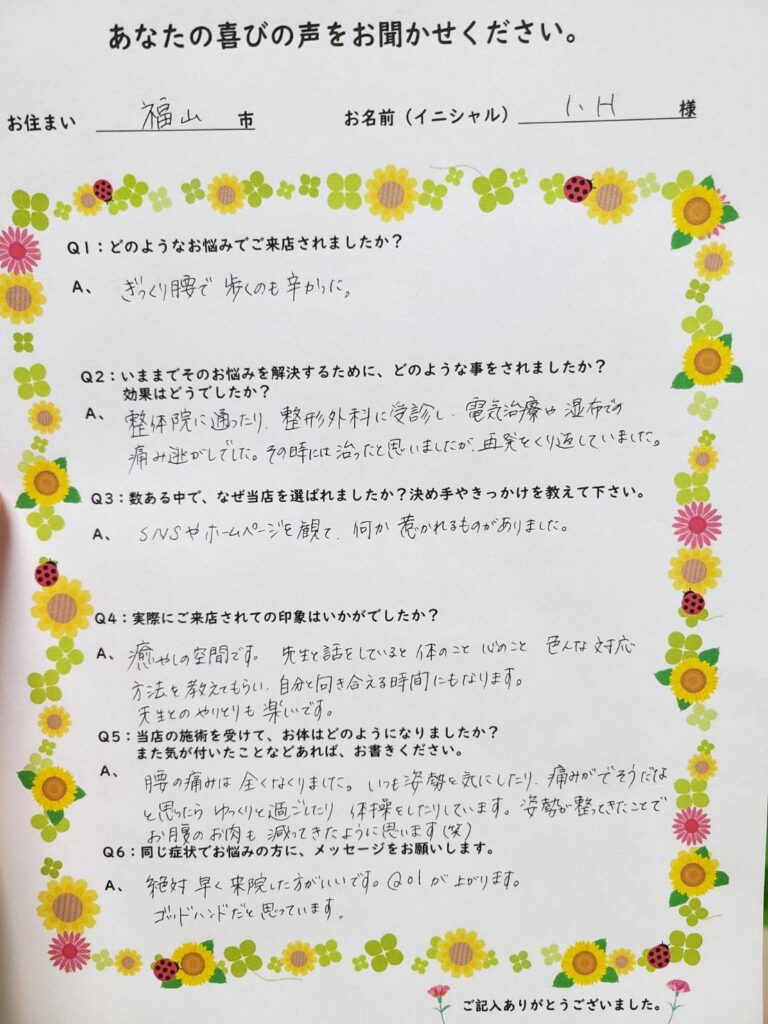 あなたの喜びの声をお聞かせください。
お住まい 福山 市 お名前(イニシャル) I.H 様
Q1:どのようなお悩みでご来店されましたか?
A、 ぎっくり腰で 歩くのも辛かった。
Q2:いままでそのお悩みを解決するために、どのような事をされましたか?
効果はどうでしたか?
A、 整体院に通ったり、整形外科に受診し、電気治療や湿布での
痛み逃がしでした。その時には治ったと思いましたが、再発をくり返していました。
Q3:数ある中で、なぜ当店を選ばれましたか?決め手やきっかけを教えて下さい。
A、 SNSやホームページを観て、何か惹かれるものがありました。
Q4:実際にご来店されての印象はいかがでしたか?
A、 癒やしの空間です。 先生と話をしていると 体のこと 心のこと 色んな対応
方法を教えてもらい、自分と向き合える時間にもなります。
先生とのやりとりも楽しいです。
Q5:当店の施術を受けて、お体はどのようになりましたか?
また気が付いたことなどあれば、お書きください。
A、 腰の痛みは全くなくりました。いつも姿勢を気にしたり、痛みがでそうだな
と思ったら ゆっくりと過ごしたり 体操をしたりしています。姿勢が整ってきたことで
お腹のお肉も減ってきたように思います(笑)
Q6:同じ症状でお悩みの方に、メッセージをお願いします。
A、 絶対 早く来院した方がいいです。QOlが上がります。
ゴッドハンドだと思っています。
ご記入ありがとうございました。